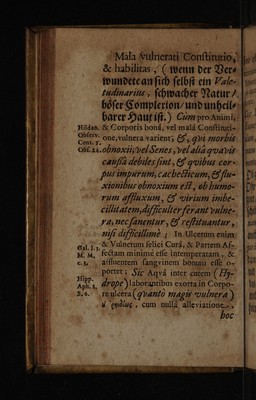 Mala vulnerati Constitutio,
& habilitas, (wenn der Ver=
wundete an sich selbst ein Vale-
tudinarius, schwacher Natur/
böser Complexion/ und unheil=
barer Haut ist.) Cum pro Animi,
Höchst.
Observ.
Cent. 5.
Obs. 21.
& Corporis bonâ, vel malâ Constituti-
one, vulnera varient, &, qui morbis
obnoxii, vel Senes, vel aliâ quavis
caussâ debiles sint, & quibus cor-
pus impurum, cachecticum, & flu-
xionibus obnoxium est, ob humo-
rum affluxum, & virium imbe-
cillitatem, difficulter ferant vulne-
ra, nec sanentur, & restituantur,
nisi difficillimè; In Ulcerum enim
Gal. l. 3.
M. M.
c. 1.
& Vulnerum felici Curâ, & Partem Af-
fectam minimè esse intemperatam, &
affluentem sanguinem bonum esse o-
portet; Sic Aquâ inter cutem (Hy-
Hipp.
Aph. 8.
S. 6.
drope) laborantibus exorta in Corpo-
re ulcera (quantò magis vulnera)
ȣ̓ ῥηϊδίως, cum nulla alleviatione,
hoc